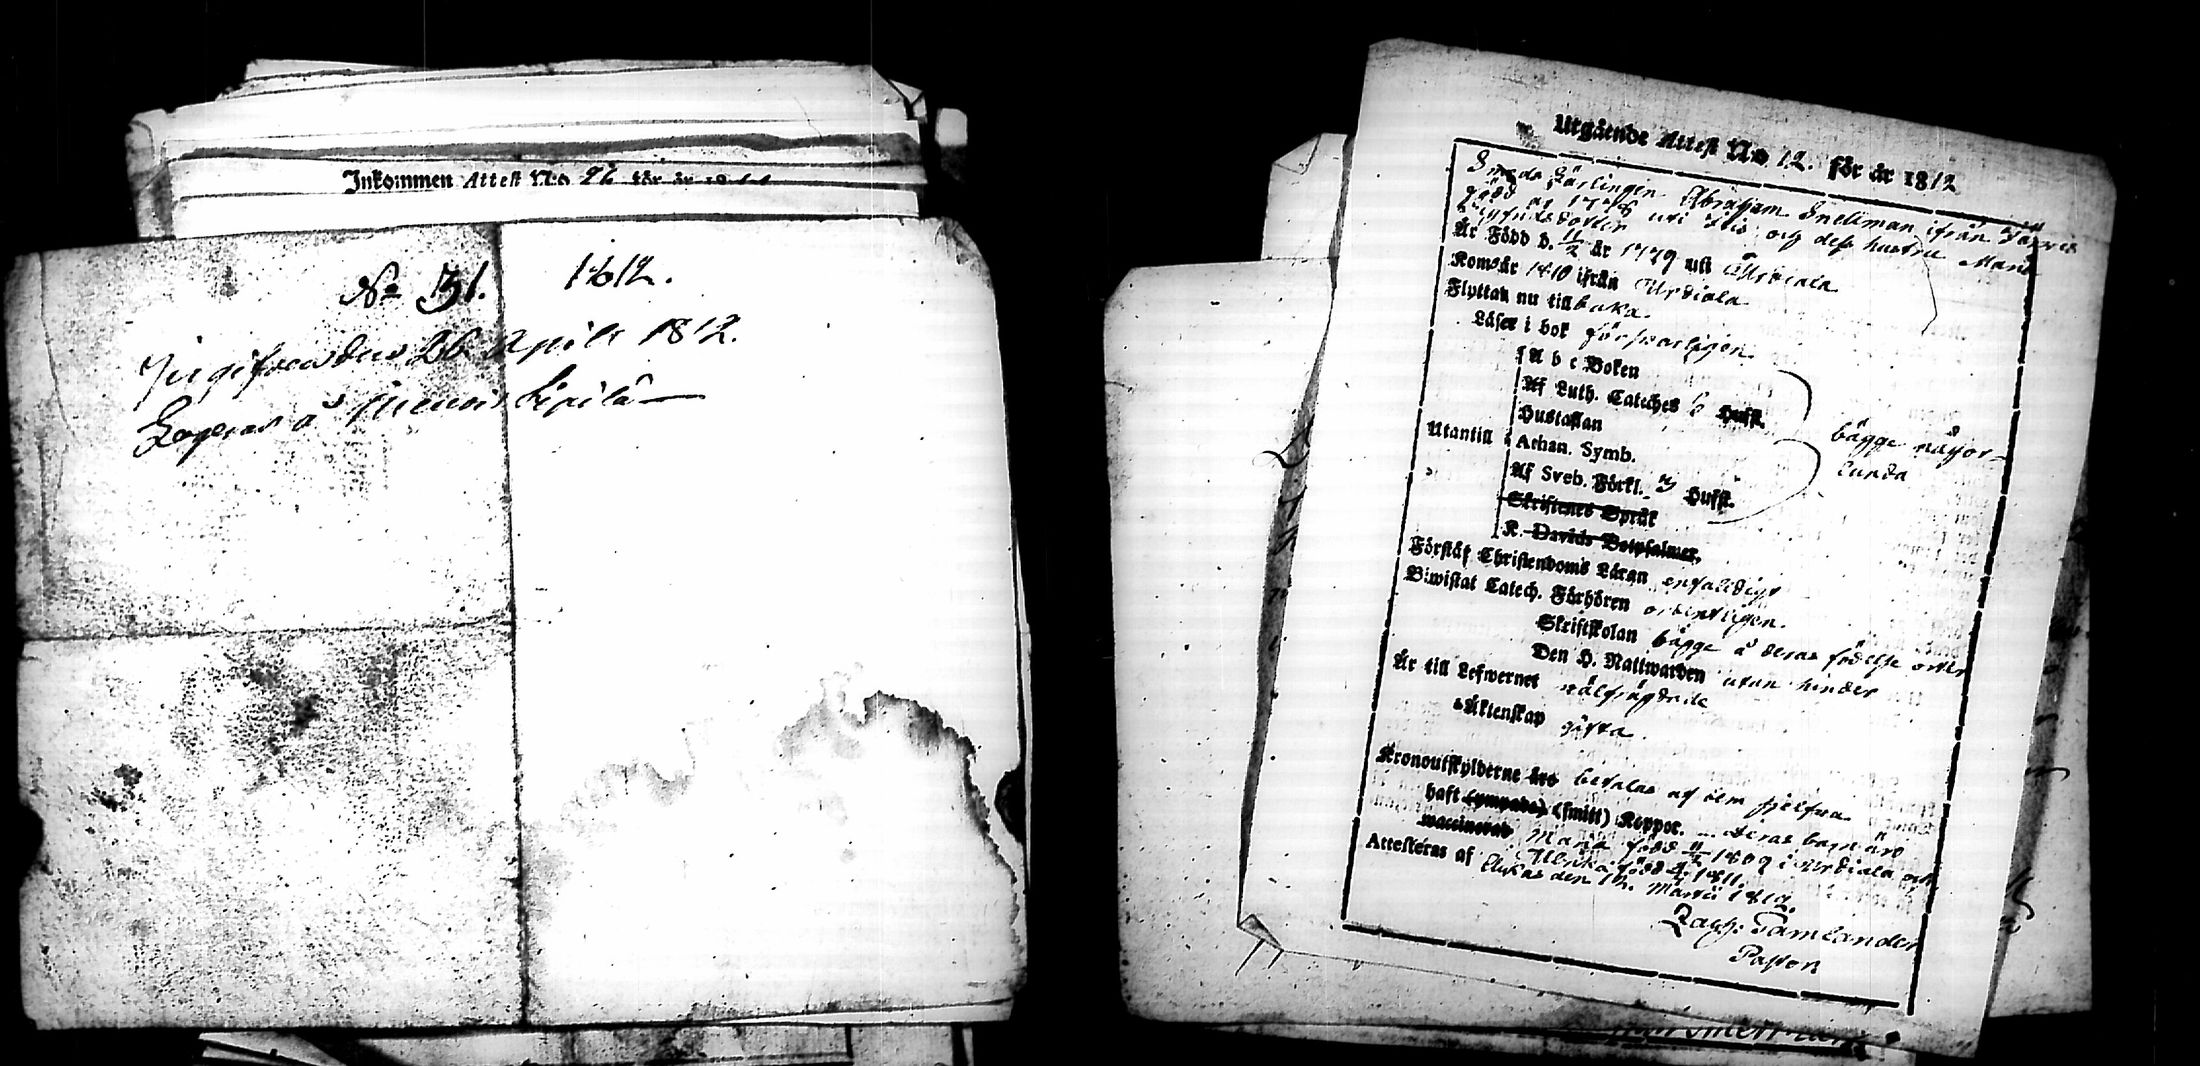 Inkommen Attest N:o 26 för år
No 31. 1812.
Ingifven den 26 Aprill 1812.
Lageras å Sipilä
Utgående Attest N:o 12. för år 1812
Smeds Lärlingen Abraham Snellman ifrån
född år 1778 uti och dess hustru Maria
Sigfridsdotter
Är Född d. 11/2 år 1779 uti Urdiala
Komår 1810 ifrån Urdiala
Flyttar nu tillbaka.
Läser i bok försvarligen
A b c Boken
Af Luth. Cateches 5 Hufst.
Hustaflan
Utantill Athan. Symb.
bägge någor-
lunda
Af Sveb. Förkl. 3 Hufst.
Skriftenes Språk
K. Davids Botpsalmer.
Förstår Christendoms Läran enfaldigt
Biwistat Catech. Förhören ordentligen.
Skriftskolan bägge å deras födelse orter
Den H. Nattwarden utan hinder
Är till Lefwernet välfrägdade
Äktenskap gifta
Kronoutskylderne äro betalas af dem sjelfva
haft (ympade) (smitt) Koppor. deras barn äro
waccinerad Maria född 11/2 1809 i Urdiala och
Ulrika född 1811.
Attesteras af den Martii 1812.
Zach: Tamlander
Pastor